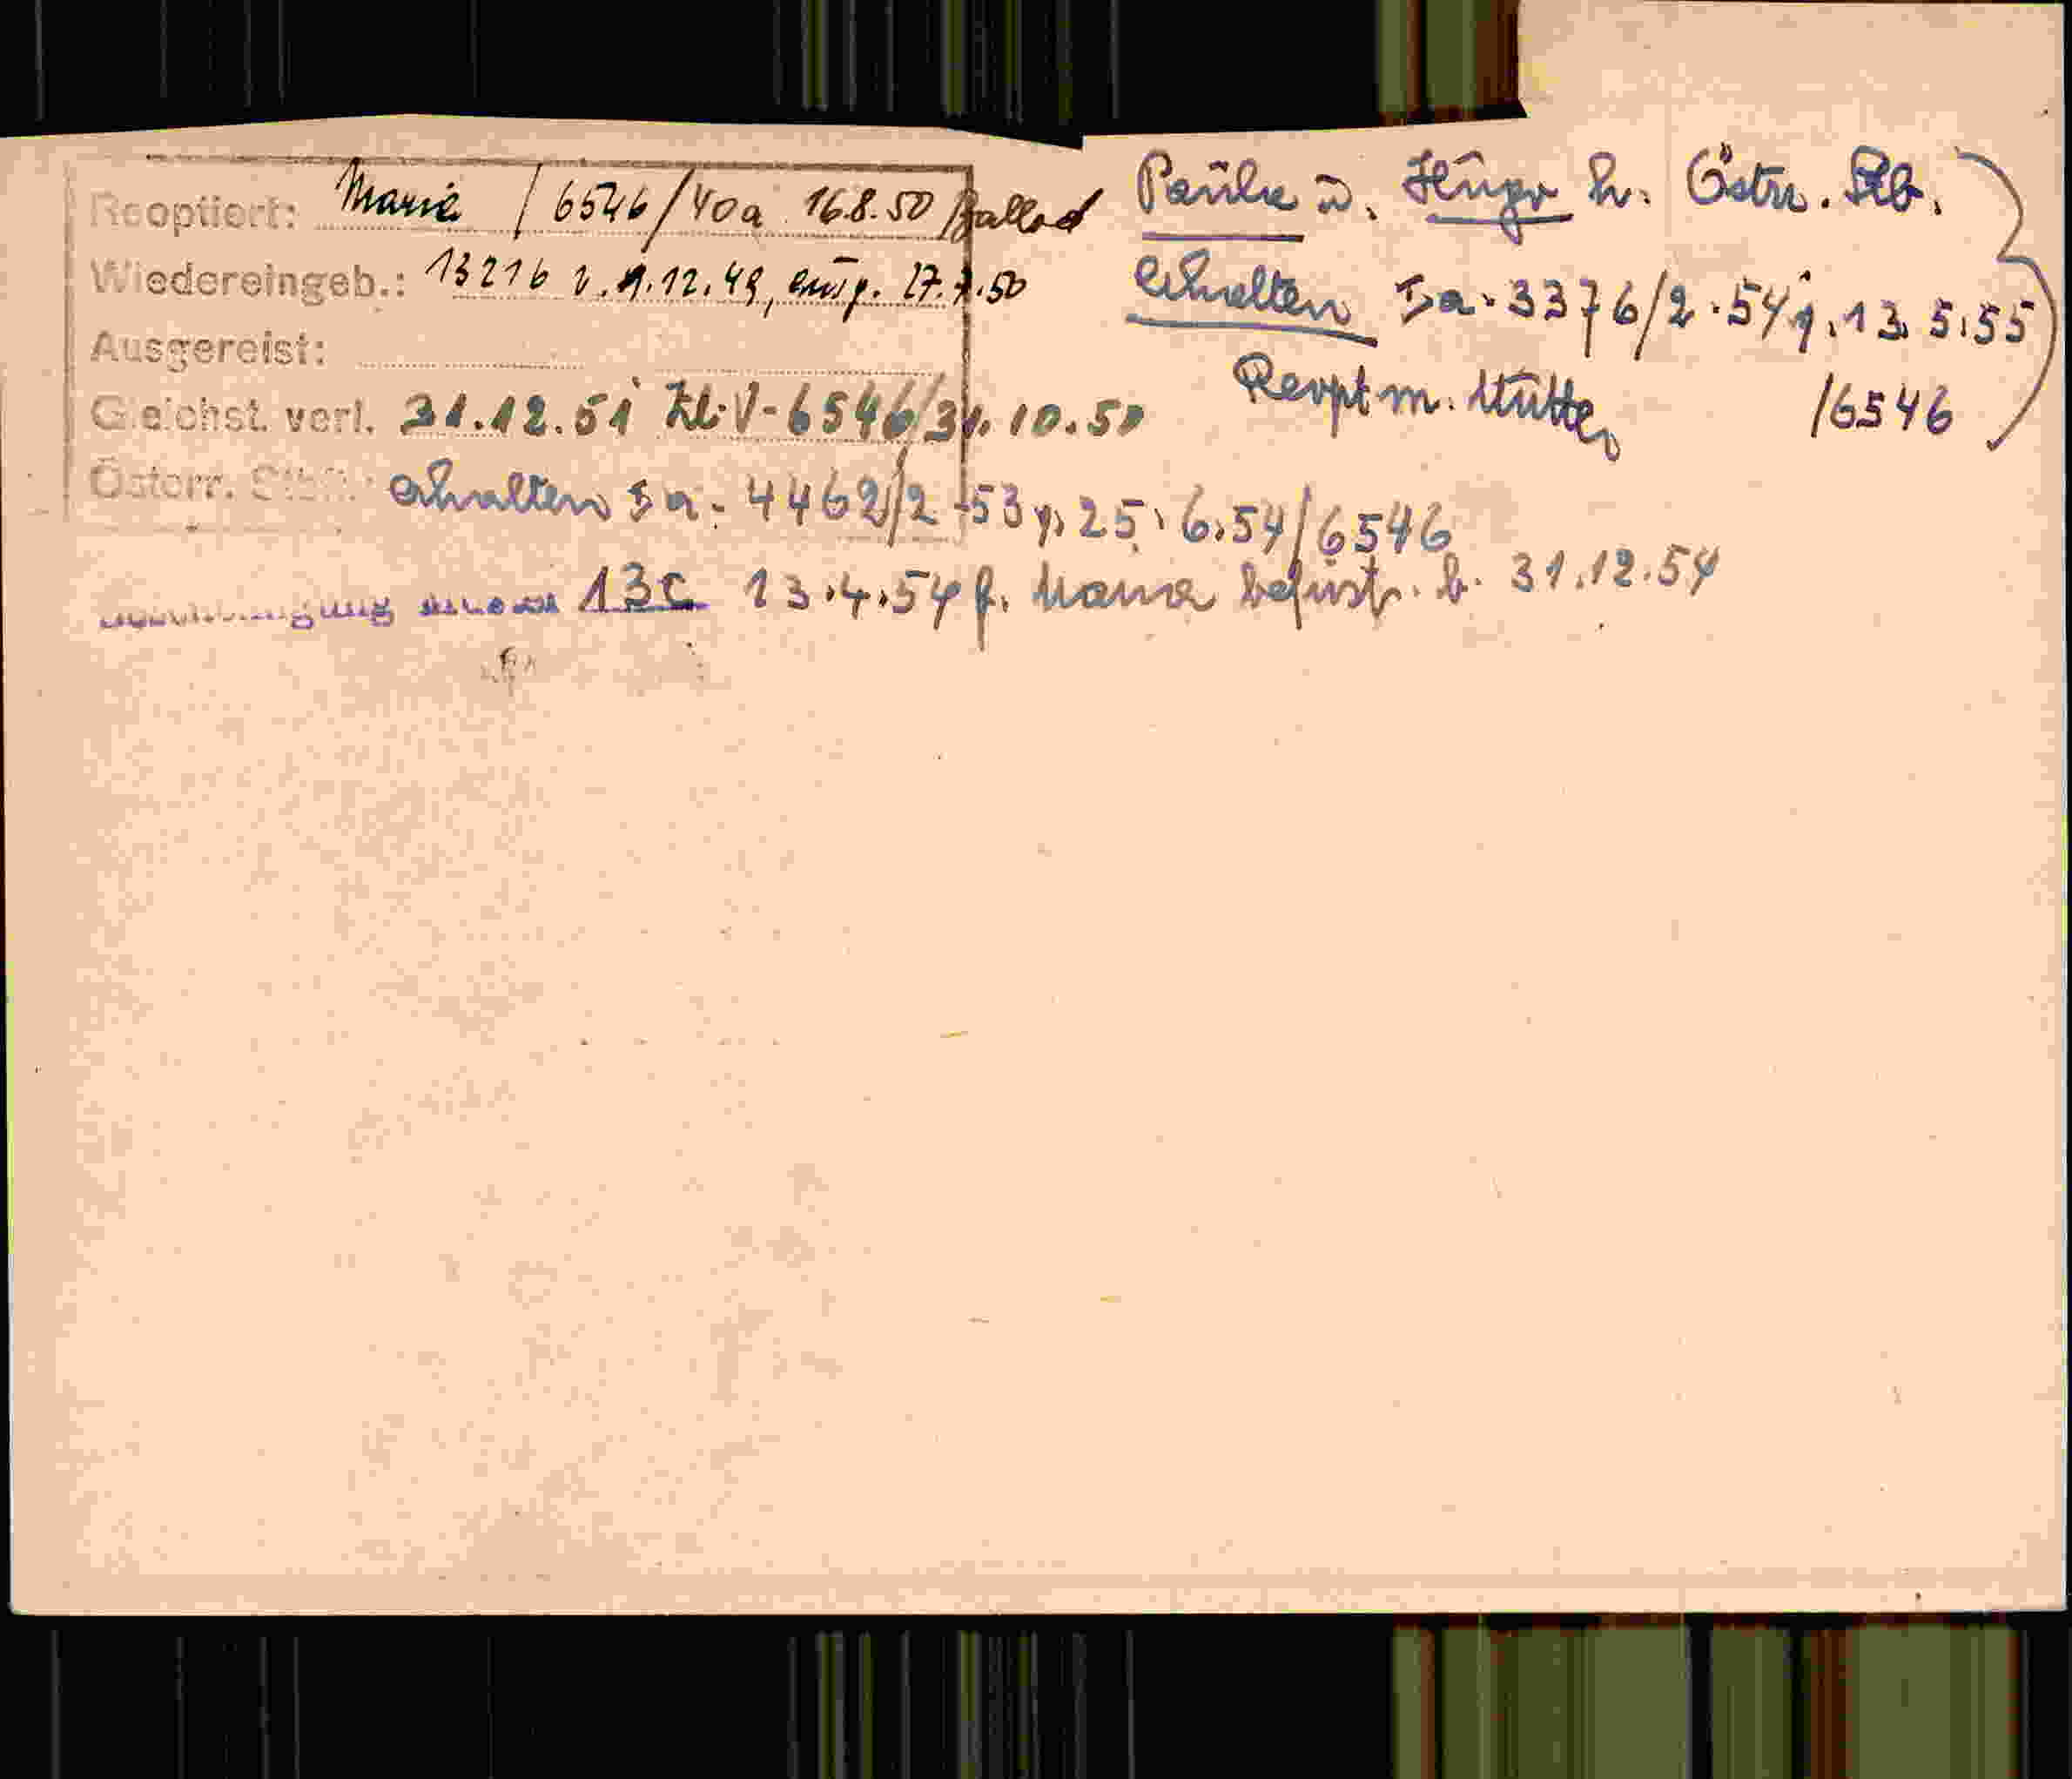 Reoptiert: Marie / 6546/40a 16.8.50
Wiedereingeb.: 13216 v. 9.12.49, 27.7.50
Ausgereist:
Gleichst. verl. 31.12.51 Zl. V-6546/31.10.50
Österr. Stb. erhalten Ia- 4462/2-53 v. 25.6.54/6546
13c 13.4.54 f. befrist. b. 31.12.54
Paula u. Hugo h. Östrr. Stb.
erhalten Ia-3376/2-54 v. 13.5.55
Reopt m. Mutter /6546